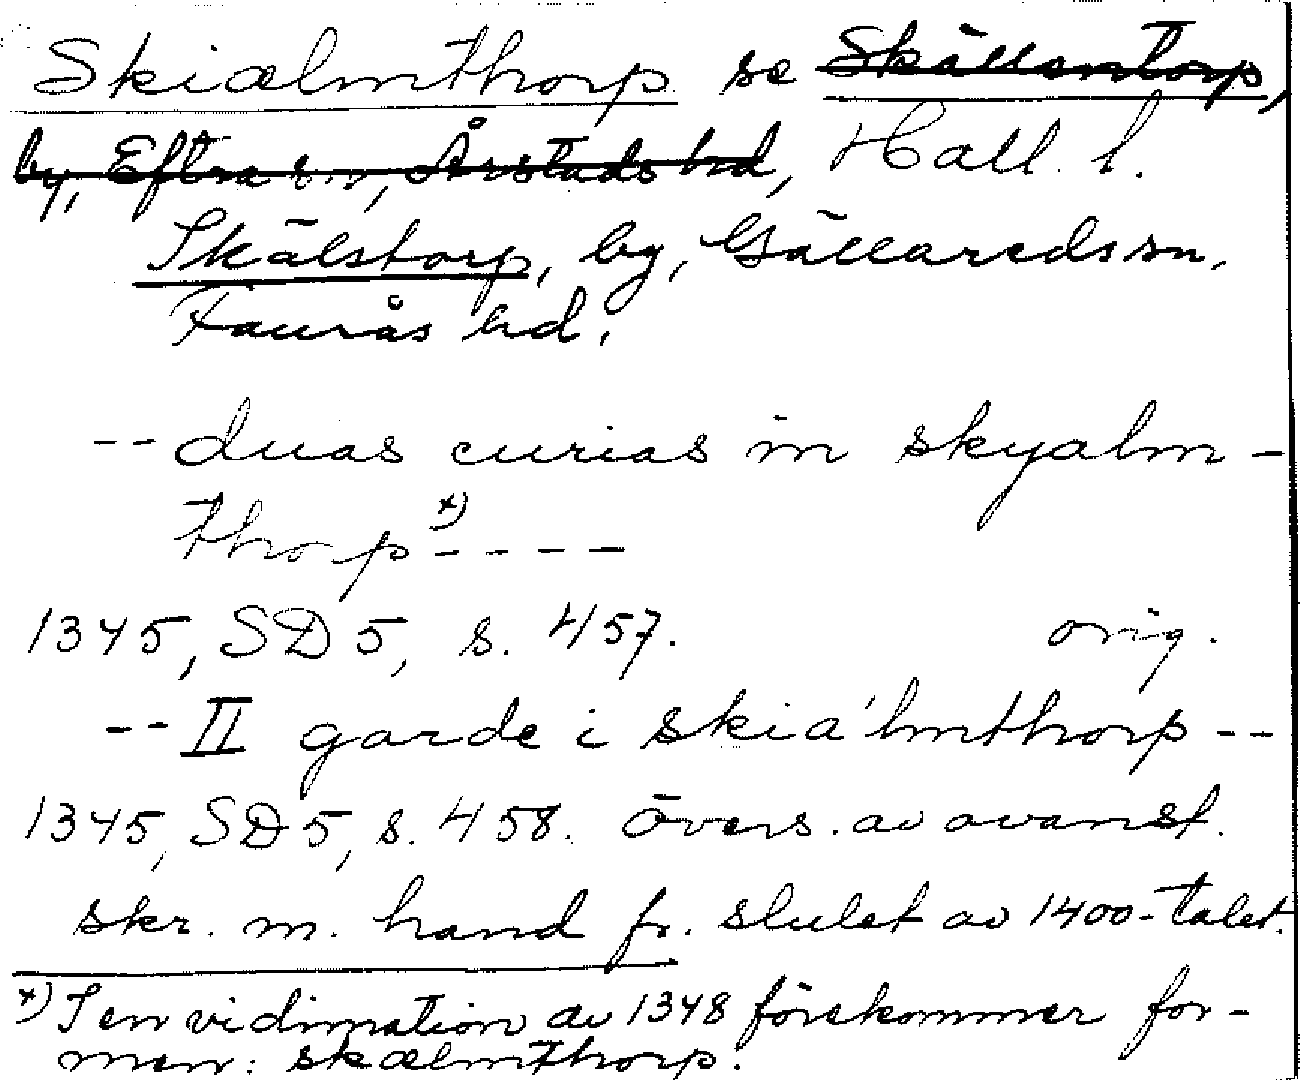 Skiælmthorp se Skällentorp,
by, Eftra sn, Årstads hd, Hall. l.
Skälstorp, by, Gällareds sn,
Faurås hd.
-- duas curias in skyalm-
thorp x) ----
1345, SD 5, s. 457. orig.
-- II garde i skia'lmthorp --
1345, SD 5, s. 458. övers. av ovanst.
skr. m. hand fr. slutet av 1400-talet.
x) I en vidimation av 1348 förekommer for-
men: skælmthorp.